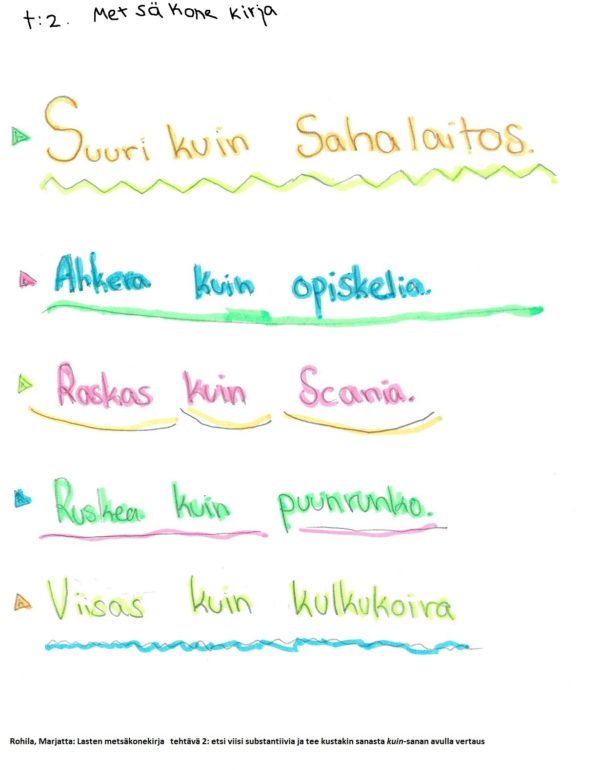 t:2. Metsäkone kirja
Suuri kuin Sahalaitos.
Ahkera kuin opiskelia.
Raskas kuin Scania.
Ruskea kuin puunrunko.
Viisas kuin kulkukoira
Rohila, Marjatta: Lasten metsäkonekirja tehtävä 2: etsi viisi substantiivia ja tee kustakin sanasta kuin-sanan avulla vertaus